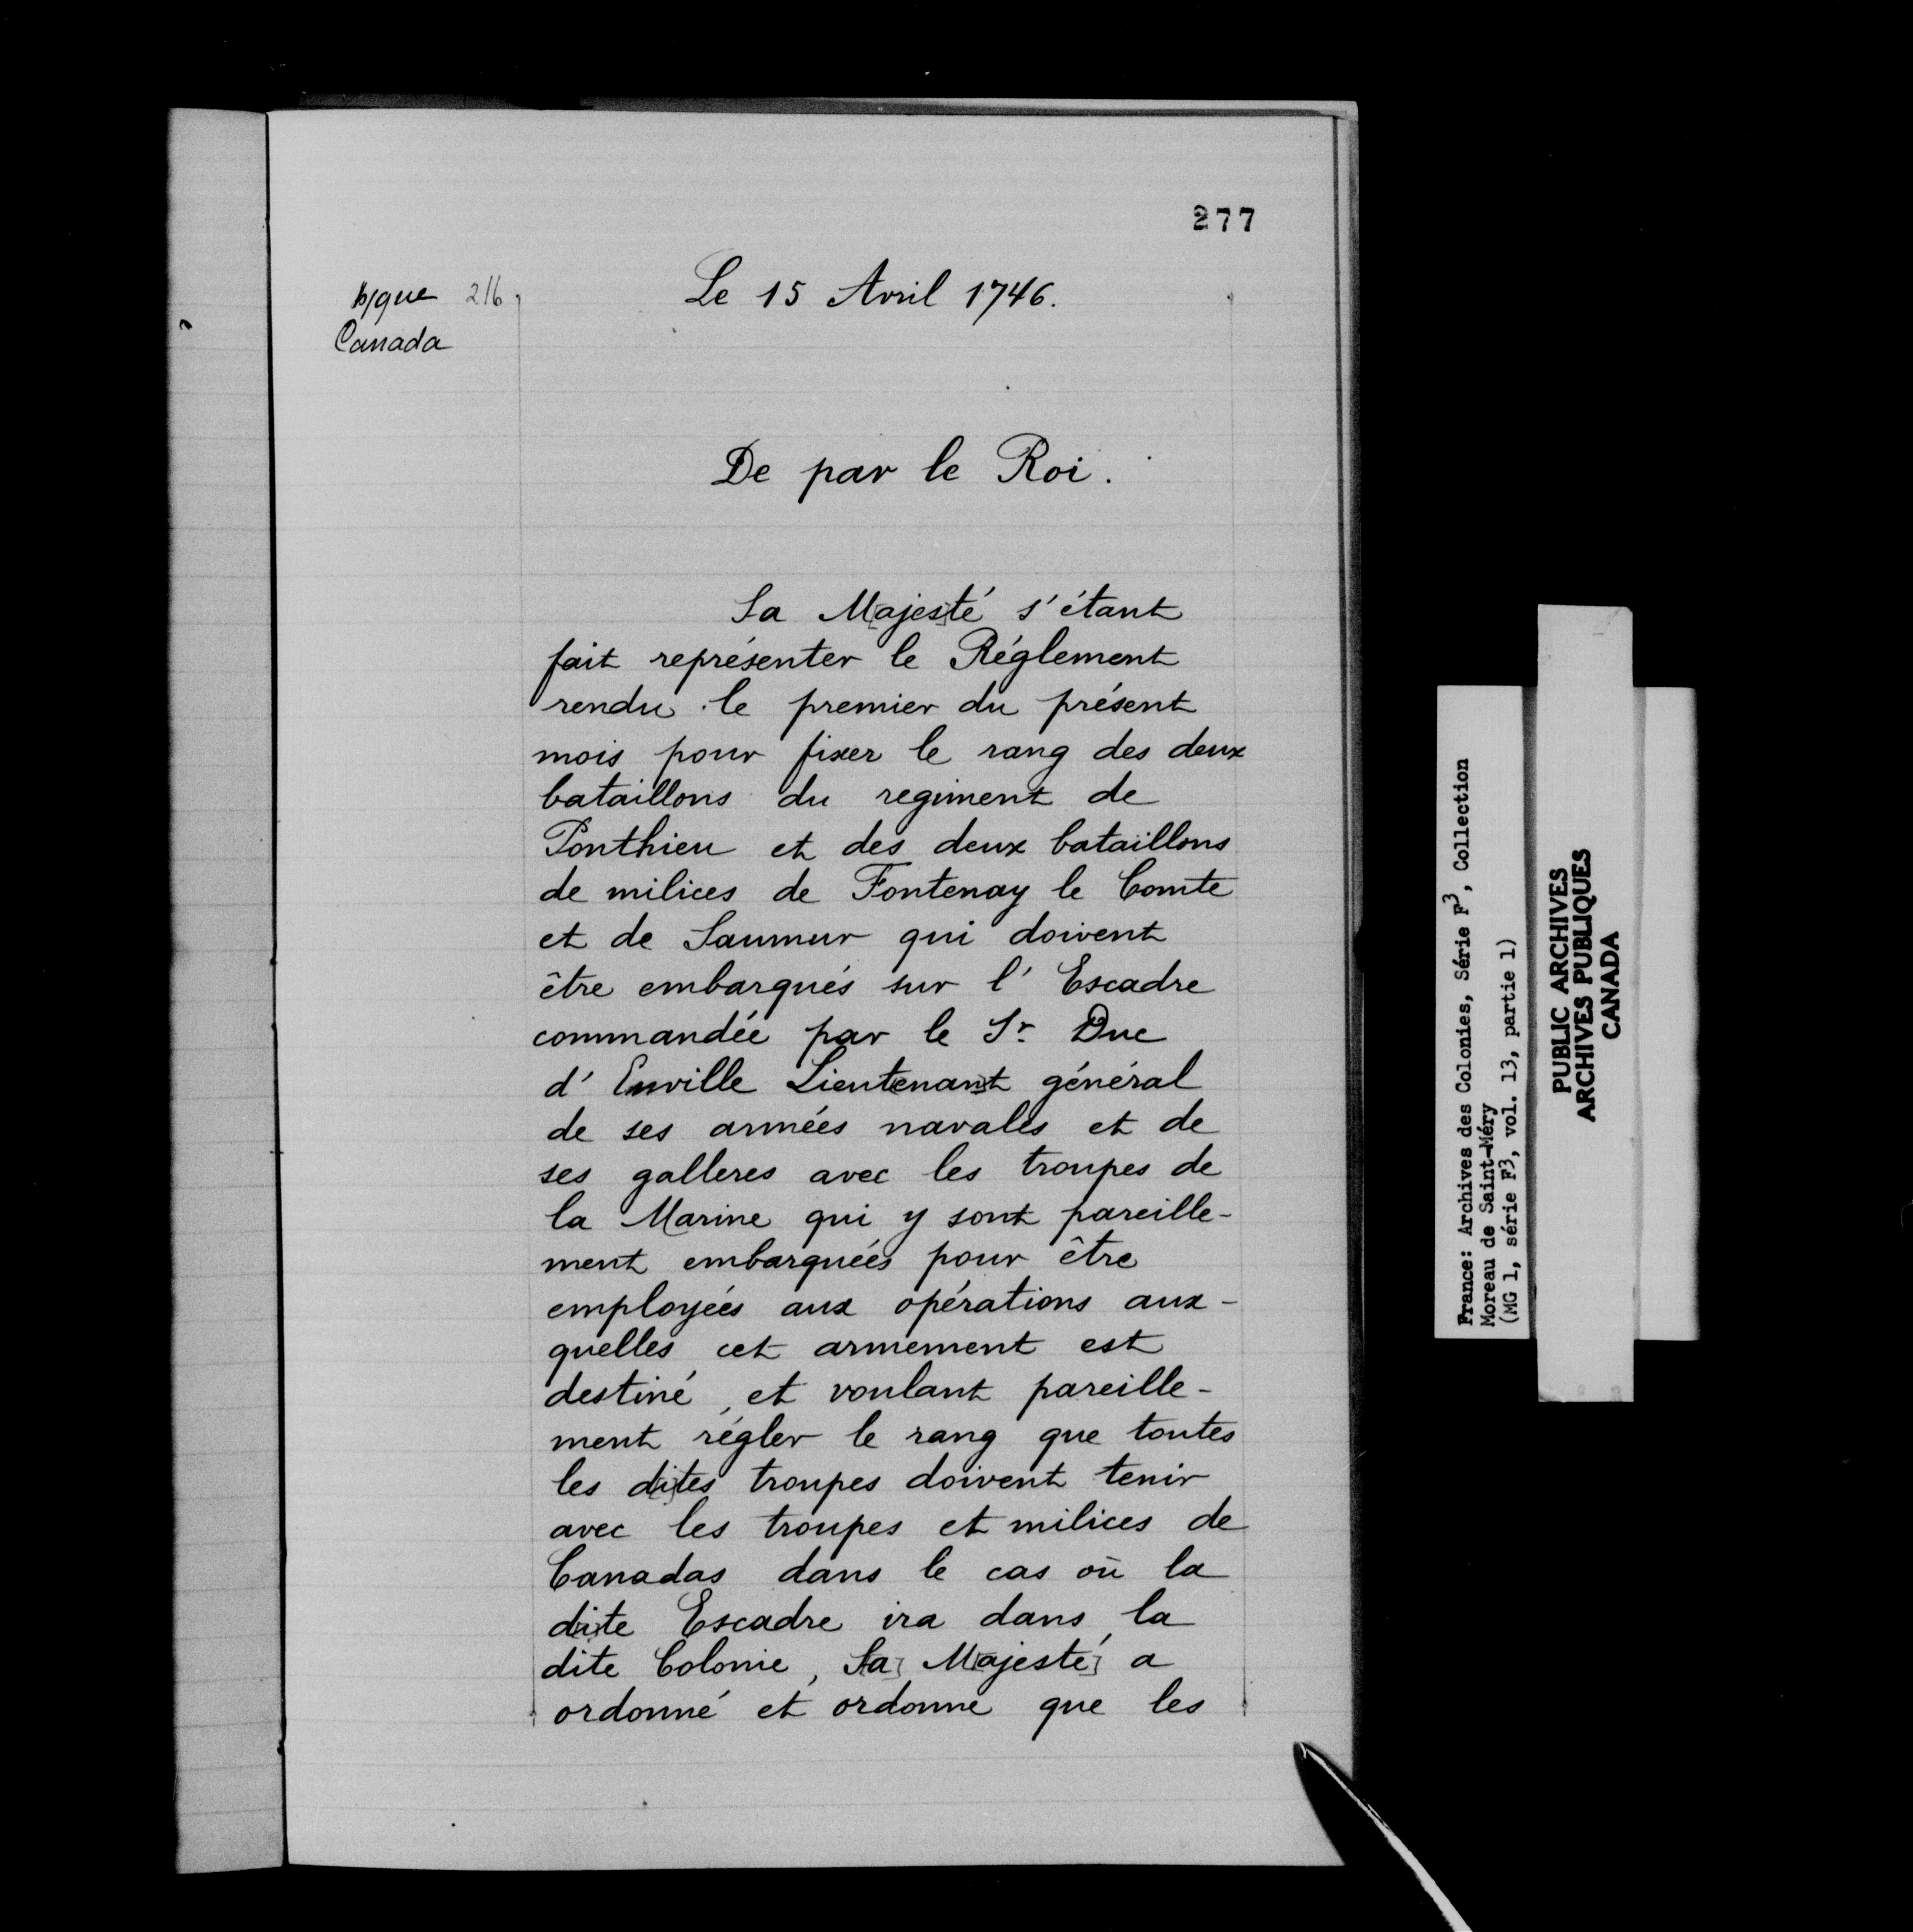 277
216
Canada
Le 15 Avril 1746.
De par le Roi.
Sa M[ajes]té s'étant
fait représenter le Réglement
rendu le premier du présent
mois pour fixer le rang des deux
bataillons du regiment de
Ponthieu et des deux bataillons
de milices de Fontenay le Comte
et de Saumur qui doivent
être embarqués sur l'Escadre
commandée par le Sr Duc
d'Enville Lieut[enan]t général
de ses armées navales et de
ses galleres avec les troupes de
la Marine qui y sont pareille-
ment embarquées pour être
employées aux opérations aux-
quelles cet armement est
destiné, et voulant pareille-
ment régler le rang que toutes
les d[i]tes troupes doivent tenir
avec les troupes et milices de
Canadas dans le cas où la
d[i]te Escadre ira dans la
dite Colonie, S[a] M[ajesté] a
ordonné et ordonne que les
France: Archives des Colonies, Série F3, Collection
Moreau de Saint-Méry
(MG 1, série F3, vol. 13, partie 1)
PUBLIC ARCHIVES
ARCHIVES PUBLIQUES
CANADA